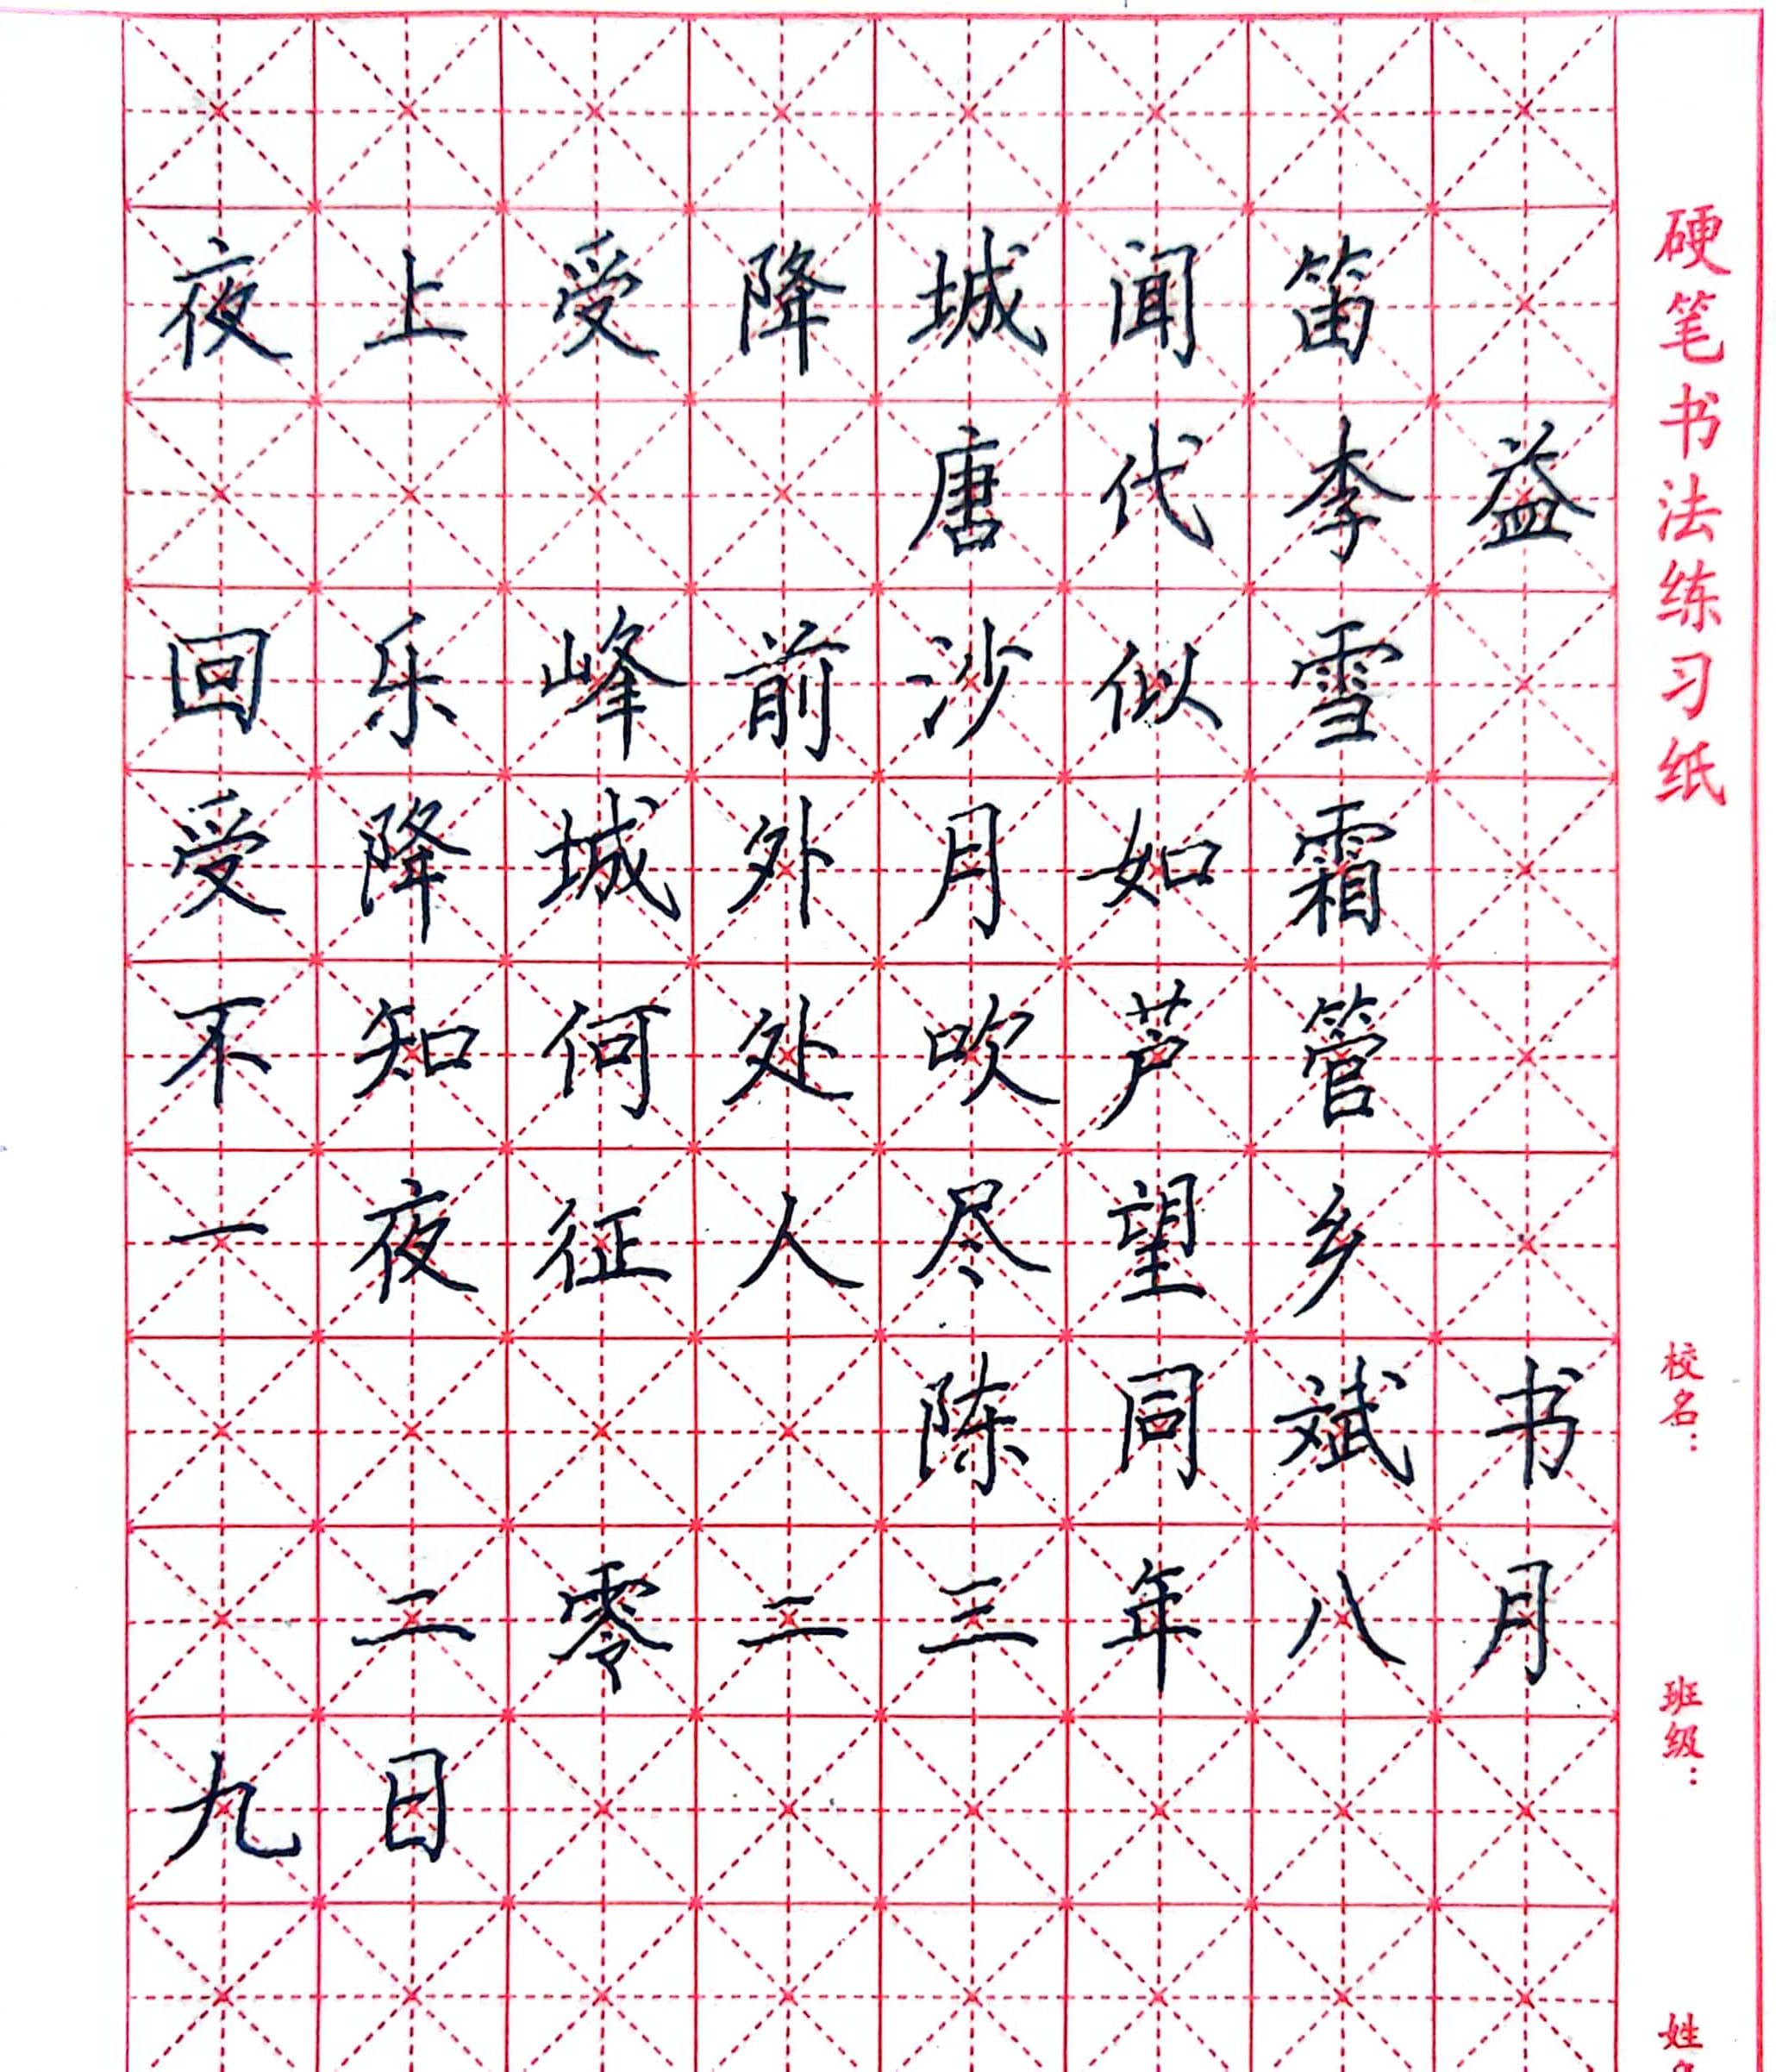 夜上受降城闻笛
唐代李益
回乐峰前沙似雪
受降城外月如霜
不知何处吹芦管
一夜征人尽望乡
陈同斌书
二零二三年八月
九日
硬笔书法练习纸
校名：
班级：
姓